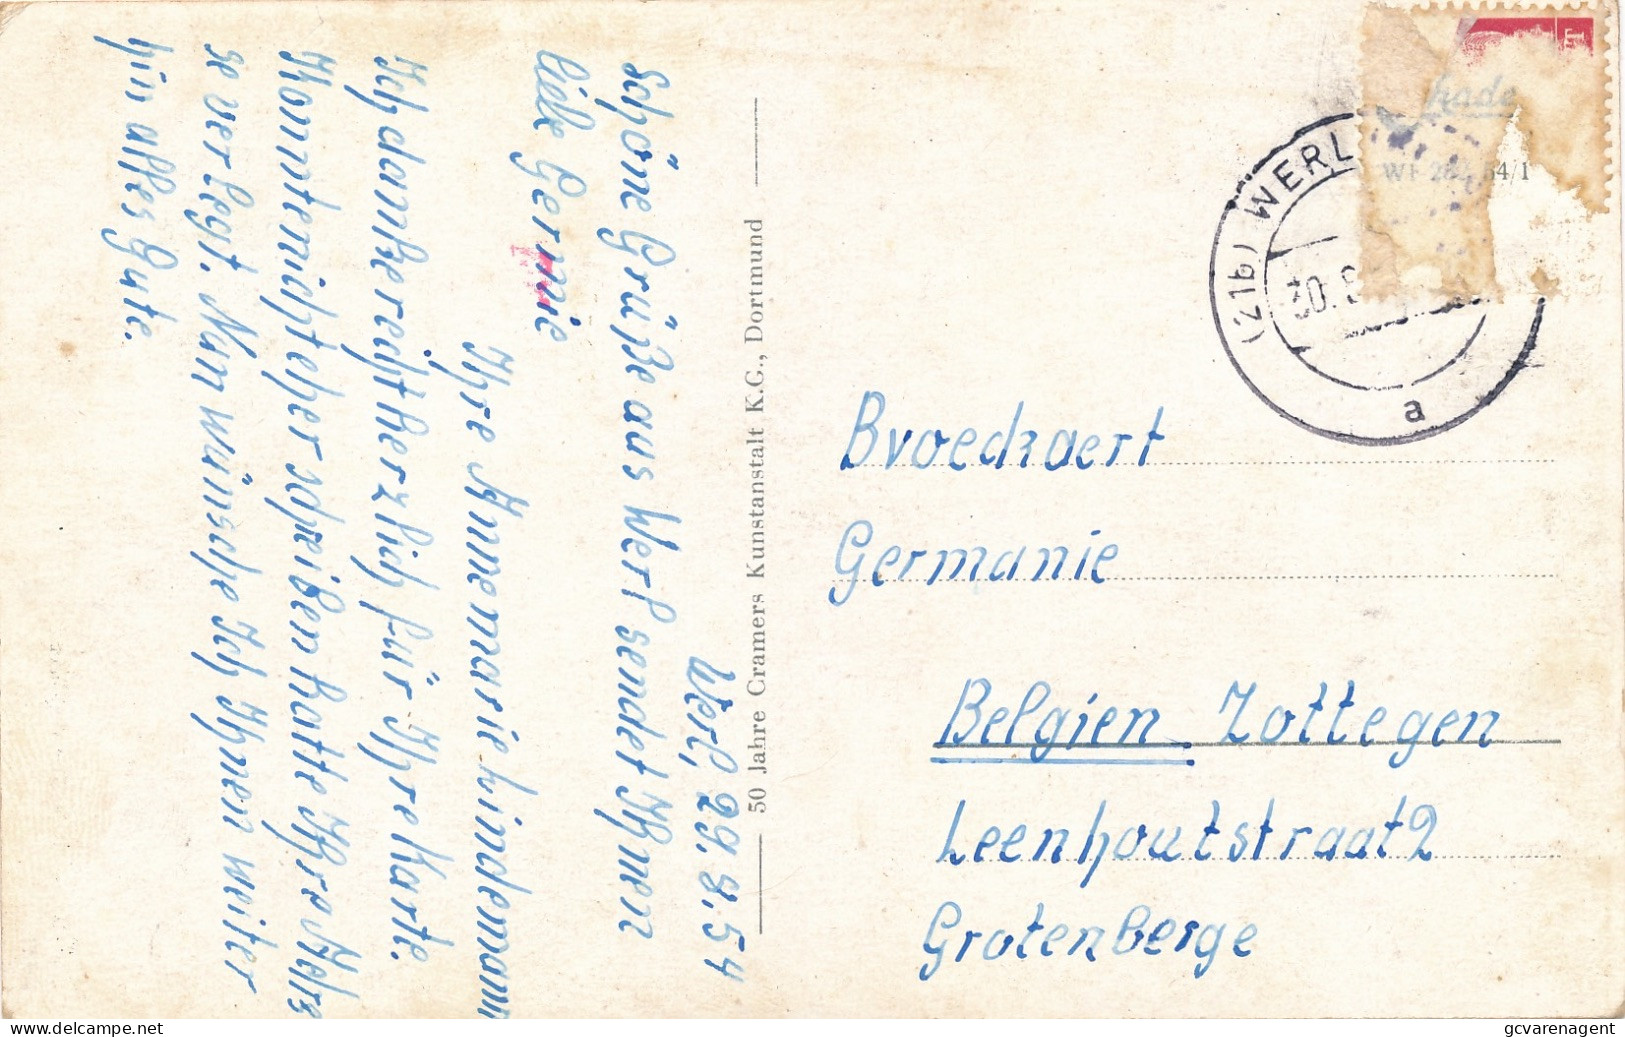 Werl, 29. 8. 54
Schöne Grüße aus Werl sendet Ihnen
Ihre Annemarie Lindemann
liebe Germnie
Ich danke recht herzlich für Ihre Karte.
Konnte nicht eher schreiben hatte Ihre Adres
se verlegt. Nun wünsche Ich Ihnen weiter
hin alles Gute.
50 Jahre Cramers Kunstanstalt K.G., Dortmund
(21b) WERL
30. 8
a
54/1
Broeckaert
Germanie
Belgien Zottegen
Leenhoutstraat 2
Grotenberge
delcampe.net
gcvarenagent